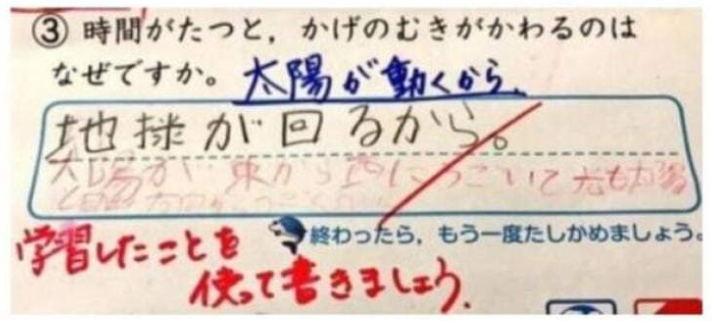 ③ 時間がたつと，かげのむきがかわるのは
なぜですか。太陽が動くから。
地球が回るから。
太陽が 東から西にうごいて
終わったら，もう一度たしかめましょう。
学習したことを
使って書きましょう。